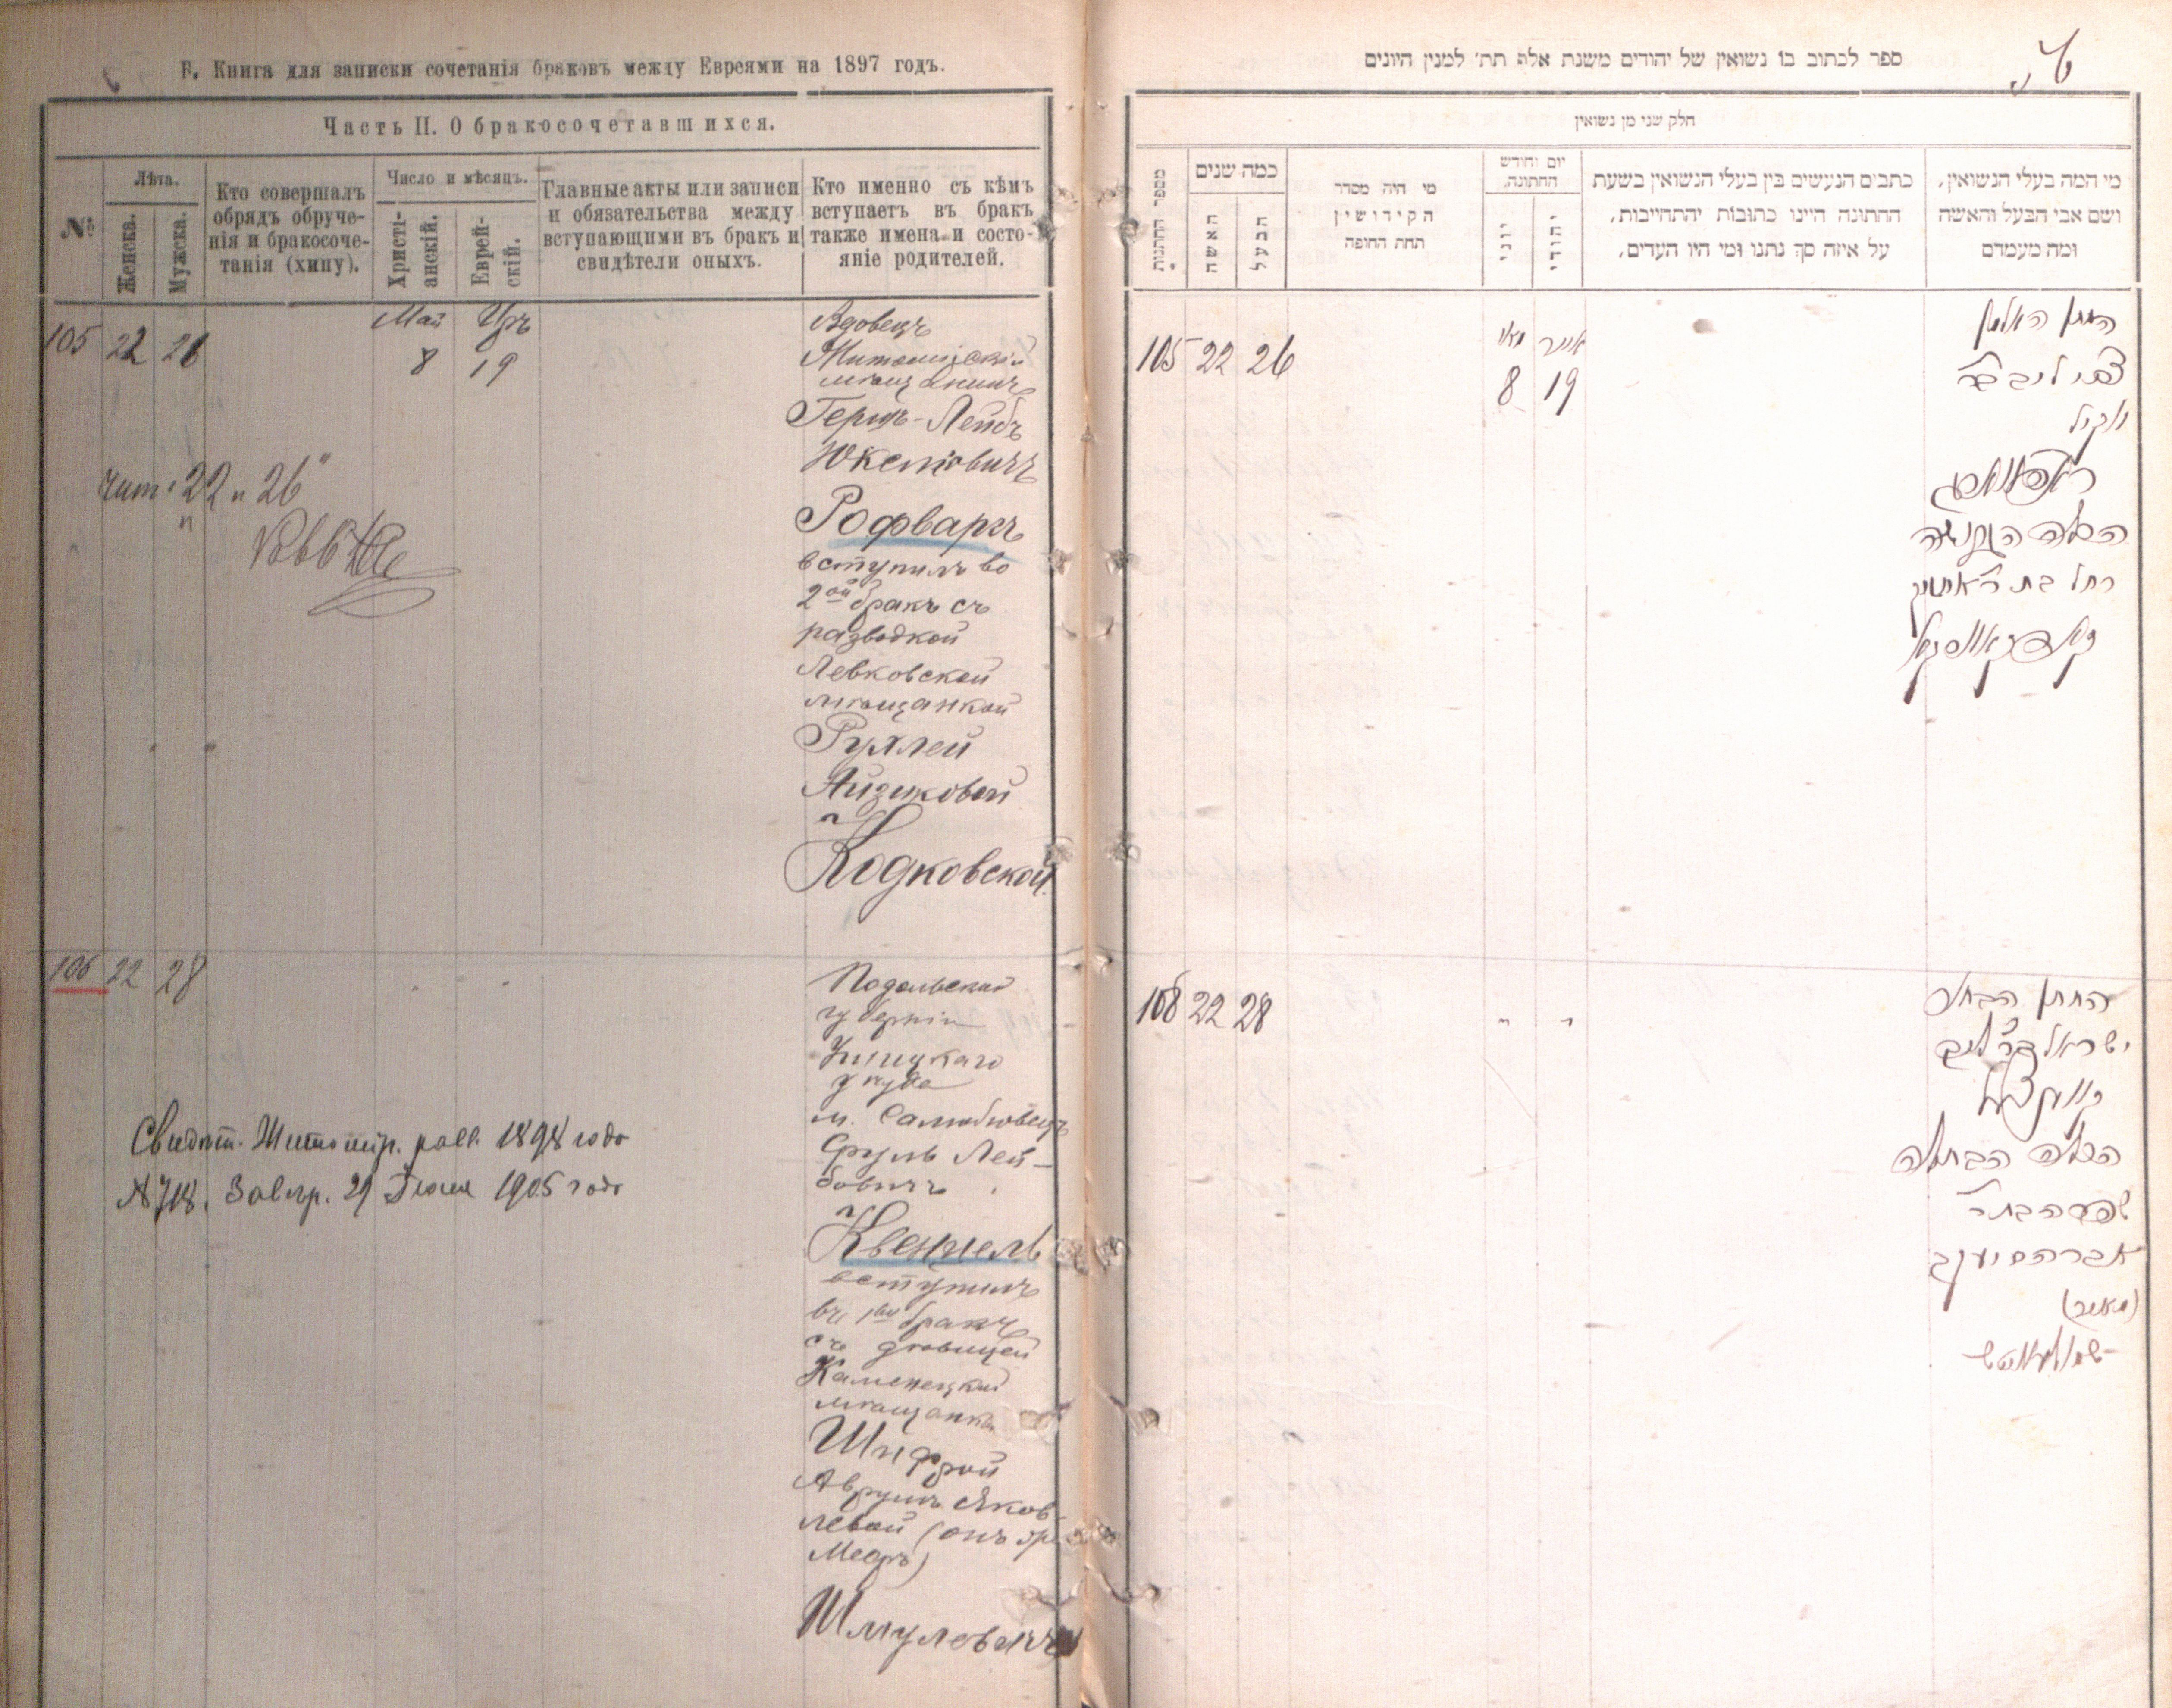 Б. Книга для записки сочетанія браковъ между Евреями на 1897 годъ.
Часть II. О бракосочетавшихся.
№
Лѣта.
Женска.
Мужска.
Кто совершалъ
обрядъ обруче-
нія и бракосоче-
танія (хипу).
Число и мѣсяцъ.
Христі-
анскій.
Еврей-
скій.
Главные акты или записи
и обязательства между
вступающими въ бракъ и
свидѣтели оныхъ.
Кто именно съ кѣмъ
вступаетъ въ бракъ
также имена и состо-
яніе родителей.
105 22 26
Май
8 19
Вдовецъ
Житомирскій
мѣщанинъ
Гершъ-Лейбъ
Юкелевичъ
Рофваргъ
вступилъ во
2ой бракъ съ
разводкой
Левковской
мѣщанкой
Рухлей
Айзиковой
Кодковской.
чит: 22 и 26"
106 22 28
Подольской
губерніи
Ушицкаго
уѣзда
м.
Сруль Лей-
бовичъ
Квенцель
вступилъ
въ 1ый бракъ
съ дѣвицей
Каменецкой
мѣщанкой
Шифрой
Аврумъ Яков-
левой (онъ же
Мееръ)
Шмулевичъ
Свидѣт. Житомир. равв. 1898 года
№718. Завѣр. 29 1905 года
ספר לכתוב בו נשואין של יהודים משנת אלף תת׳ למנין היונים
חלק שני מן נשואין
מספר החתונות
כמה שנים
האשה
הבעל
מי היה מסדר
הקידושין
תחת החופה
יום וחודש
החתונה.
יוני
יהודי
כתבים הנעשים בין בעלי הנשואין בשעת
החתונה היינו כתובות והתחייבות,
על איזה סך נתנו ומי היו העדים,
מי המה בעלי הנשואין,
ושם אבי הבעל והאשה
ומה מעמדם
105 22 26
מאי אייר
8 19
החתן האלמן
צבי ליב בר׳
יוקיל
ראפווארג
הכלה הגרושה
רחל בת ר׳ אייזיק
106 22 28
החתן הבחור
ישראל בר׳ ליב
קווענצעל
הכלה הבתולה
שפרה בת ר׳
אברהם יעקב
(מאיר)